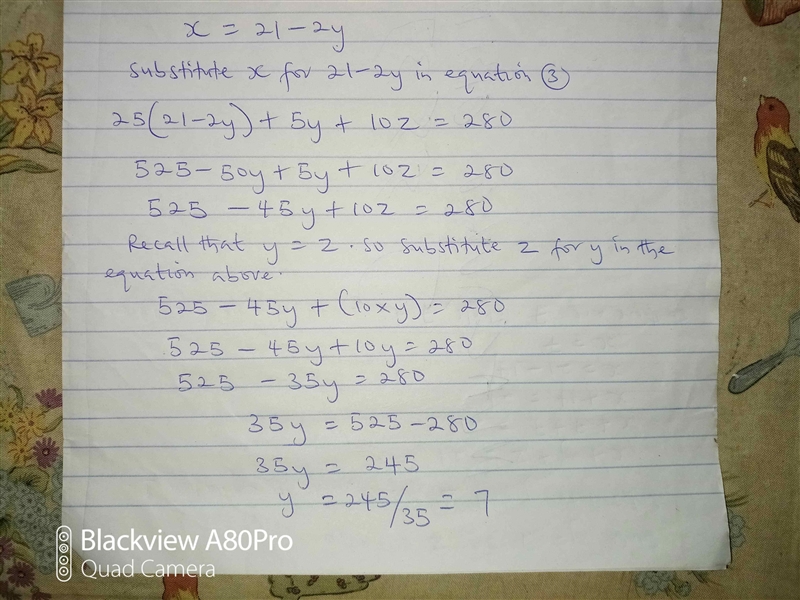 x = 21 - 2y
Substitute x for 21-2y in equation ③
25(21-2y) + 5y + 10z = 280
525 - 50y + 5y + 10z = 280
525 - 45y + 10z = 280
Recall that y = z. so substitute z for y in the
equation above.
525 - 45y + (10xy) = 280
525 - 45y + 10y = 280
525 - 35y = 280
35y = 525 - 280
35y = 245
y = 245/35 = 7
Blackview A80Pro
Quad Camera